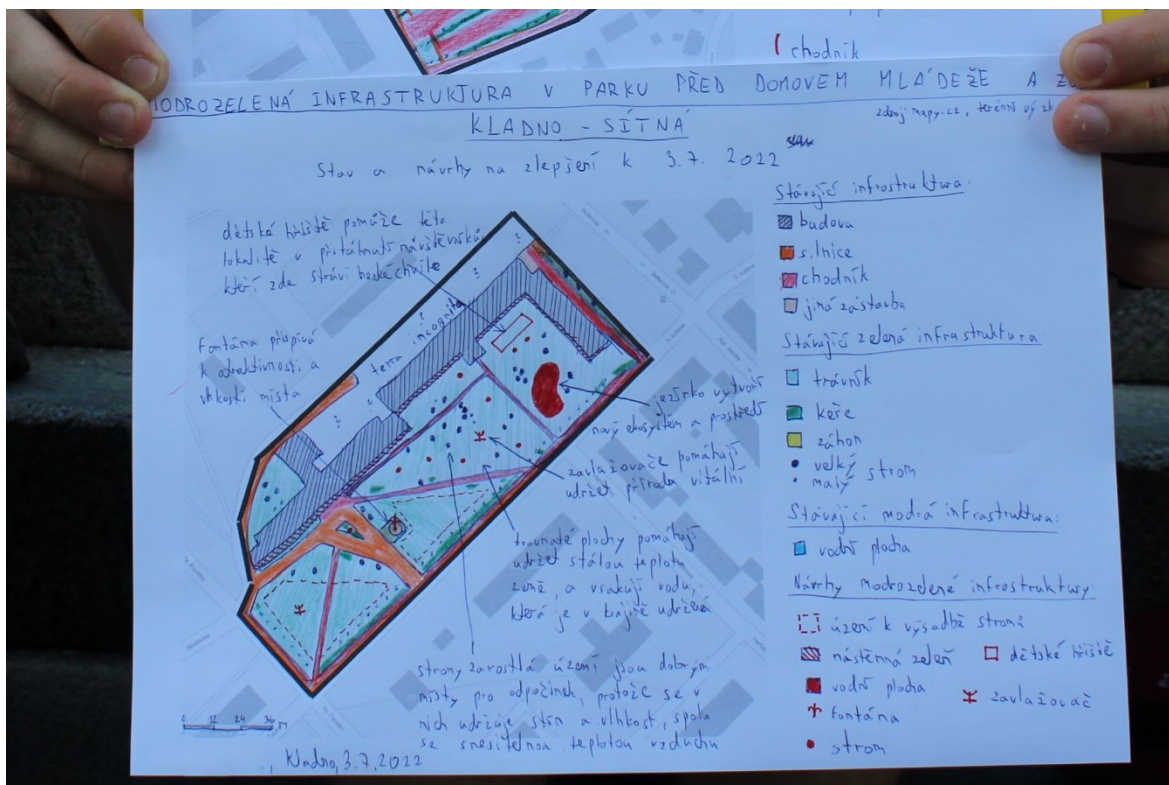 chodník
MODROZELENÁ INFRASTRUKTURA V PARKU PŘED DOMOVEM MLÁDEŽE A
KLADNO - SÍTNÁ
zdroj mapy.cz, terénní
Stav a návrhy na zlepšení k 3.7. 2022
dětské hřiště pomůže této
lokalitě v přitáhnutí návštěvníků,
kteří zde stráví hezké chvíle
Fontána přispívá
k atraktivnosti a
vlhkosti místa
terra incognita
? ? ? ? ?
jezírko vytvoří
nový ekosystém a prostředí
zavlažovače pomáhají
udržet přírodu vitální
travnaté plochy pomáhají
udržet stálou teplotu
země, a vsakují vodu,
která je v krajině udržená
stromy zarostlá území jsou dobrými
místy pro odpočinek, protože se v
nich udržuje stín a vlhkost, spolu
se snesitelnou teplotou vzduchu
0 12 24 36 m
Kladno, 3.7.2022
Stávající infrastruktura:
budova
silnice
chodník
jiná zástavba
Stávající zelená infrastruktura
trávník
keře
záhon
velký strom
malý
Stávající modrá infrastruktura:
vodní plocha
Návrhy modrozelené infrastruktury
území k výsadbě stromů
nástěnná zeleň
dětské hřiště
vodní plocha
zavlažovač
fontána
strom